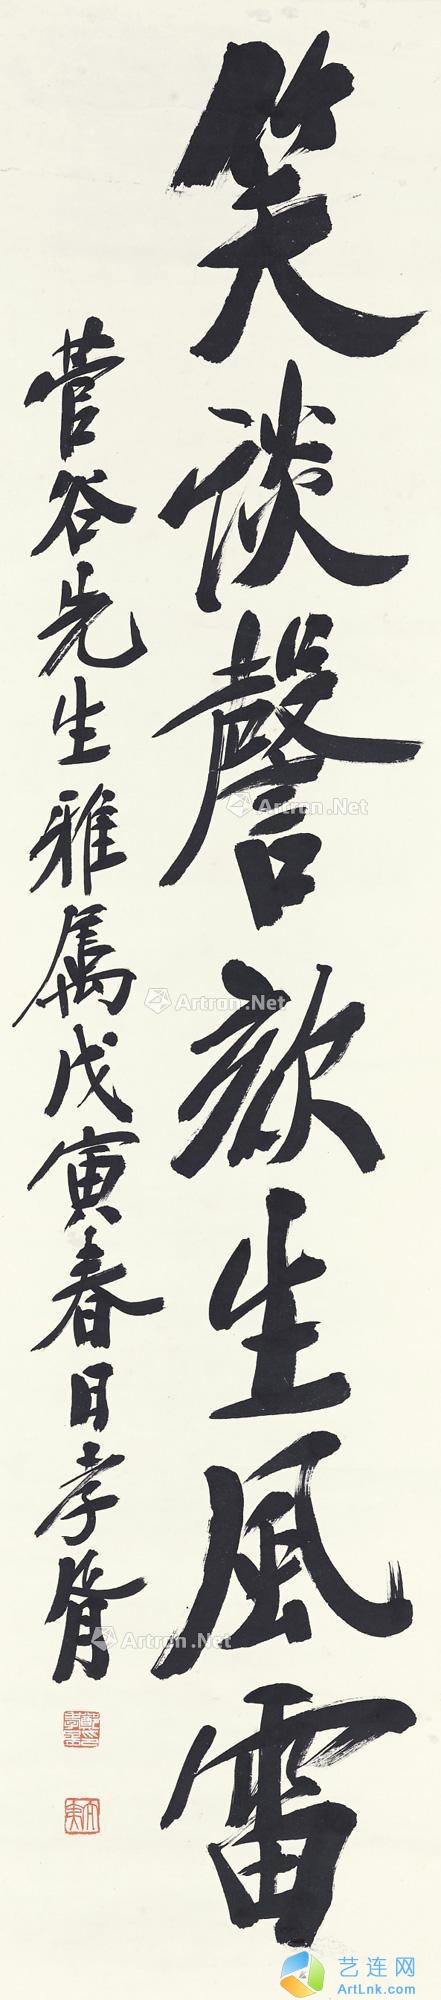 笑谈謦欬生風雷
菅谷先生雅属戊寅春日孝胥
Artron.Net
Artron.Net
Artron.Net
艺连网
ArtLnk.com